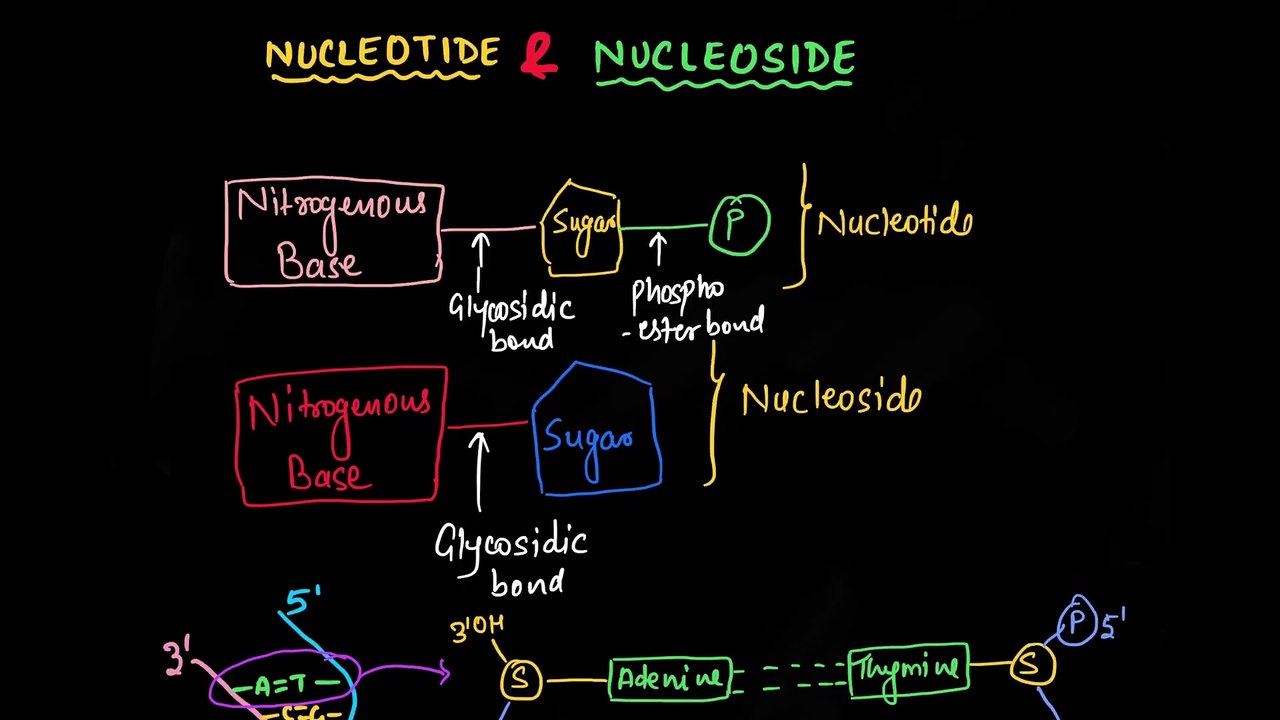 NUCLEOTIDE & NUCLEOSIDE
Nitrogenous
Base
Sugar
P
Nucleotide
Glycosidic
bond
phospho
-ester bond
Nitrogenous
Base
Sugar
Nucleoside
Glycosidic
bond
5'
3'
A=T
3'OH
S
Adenine
Thymine
S
P
5'